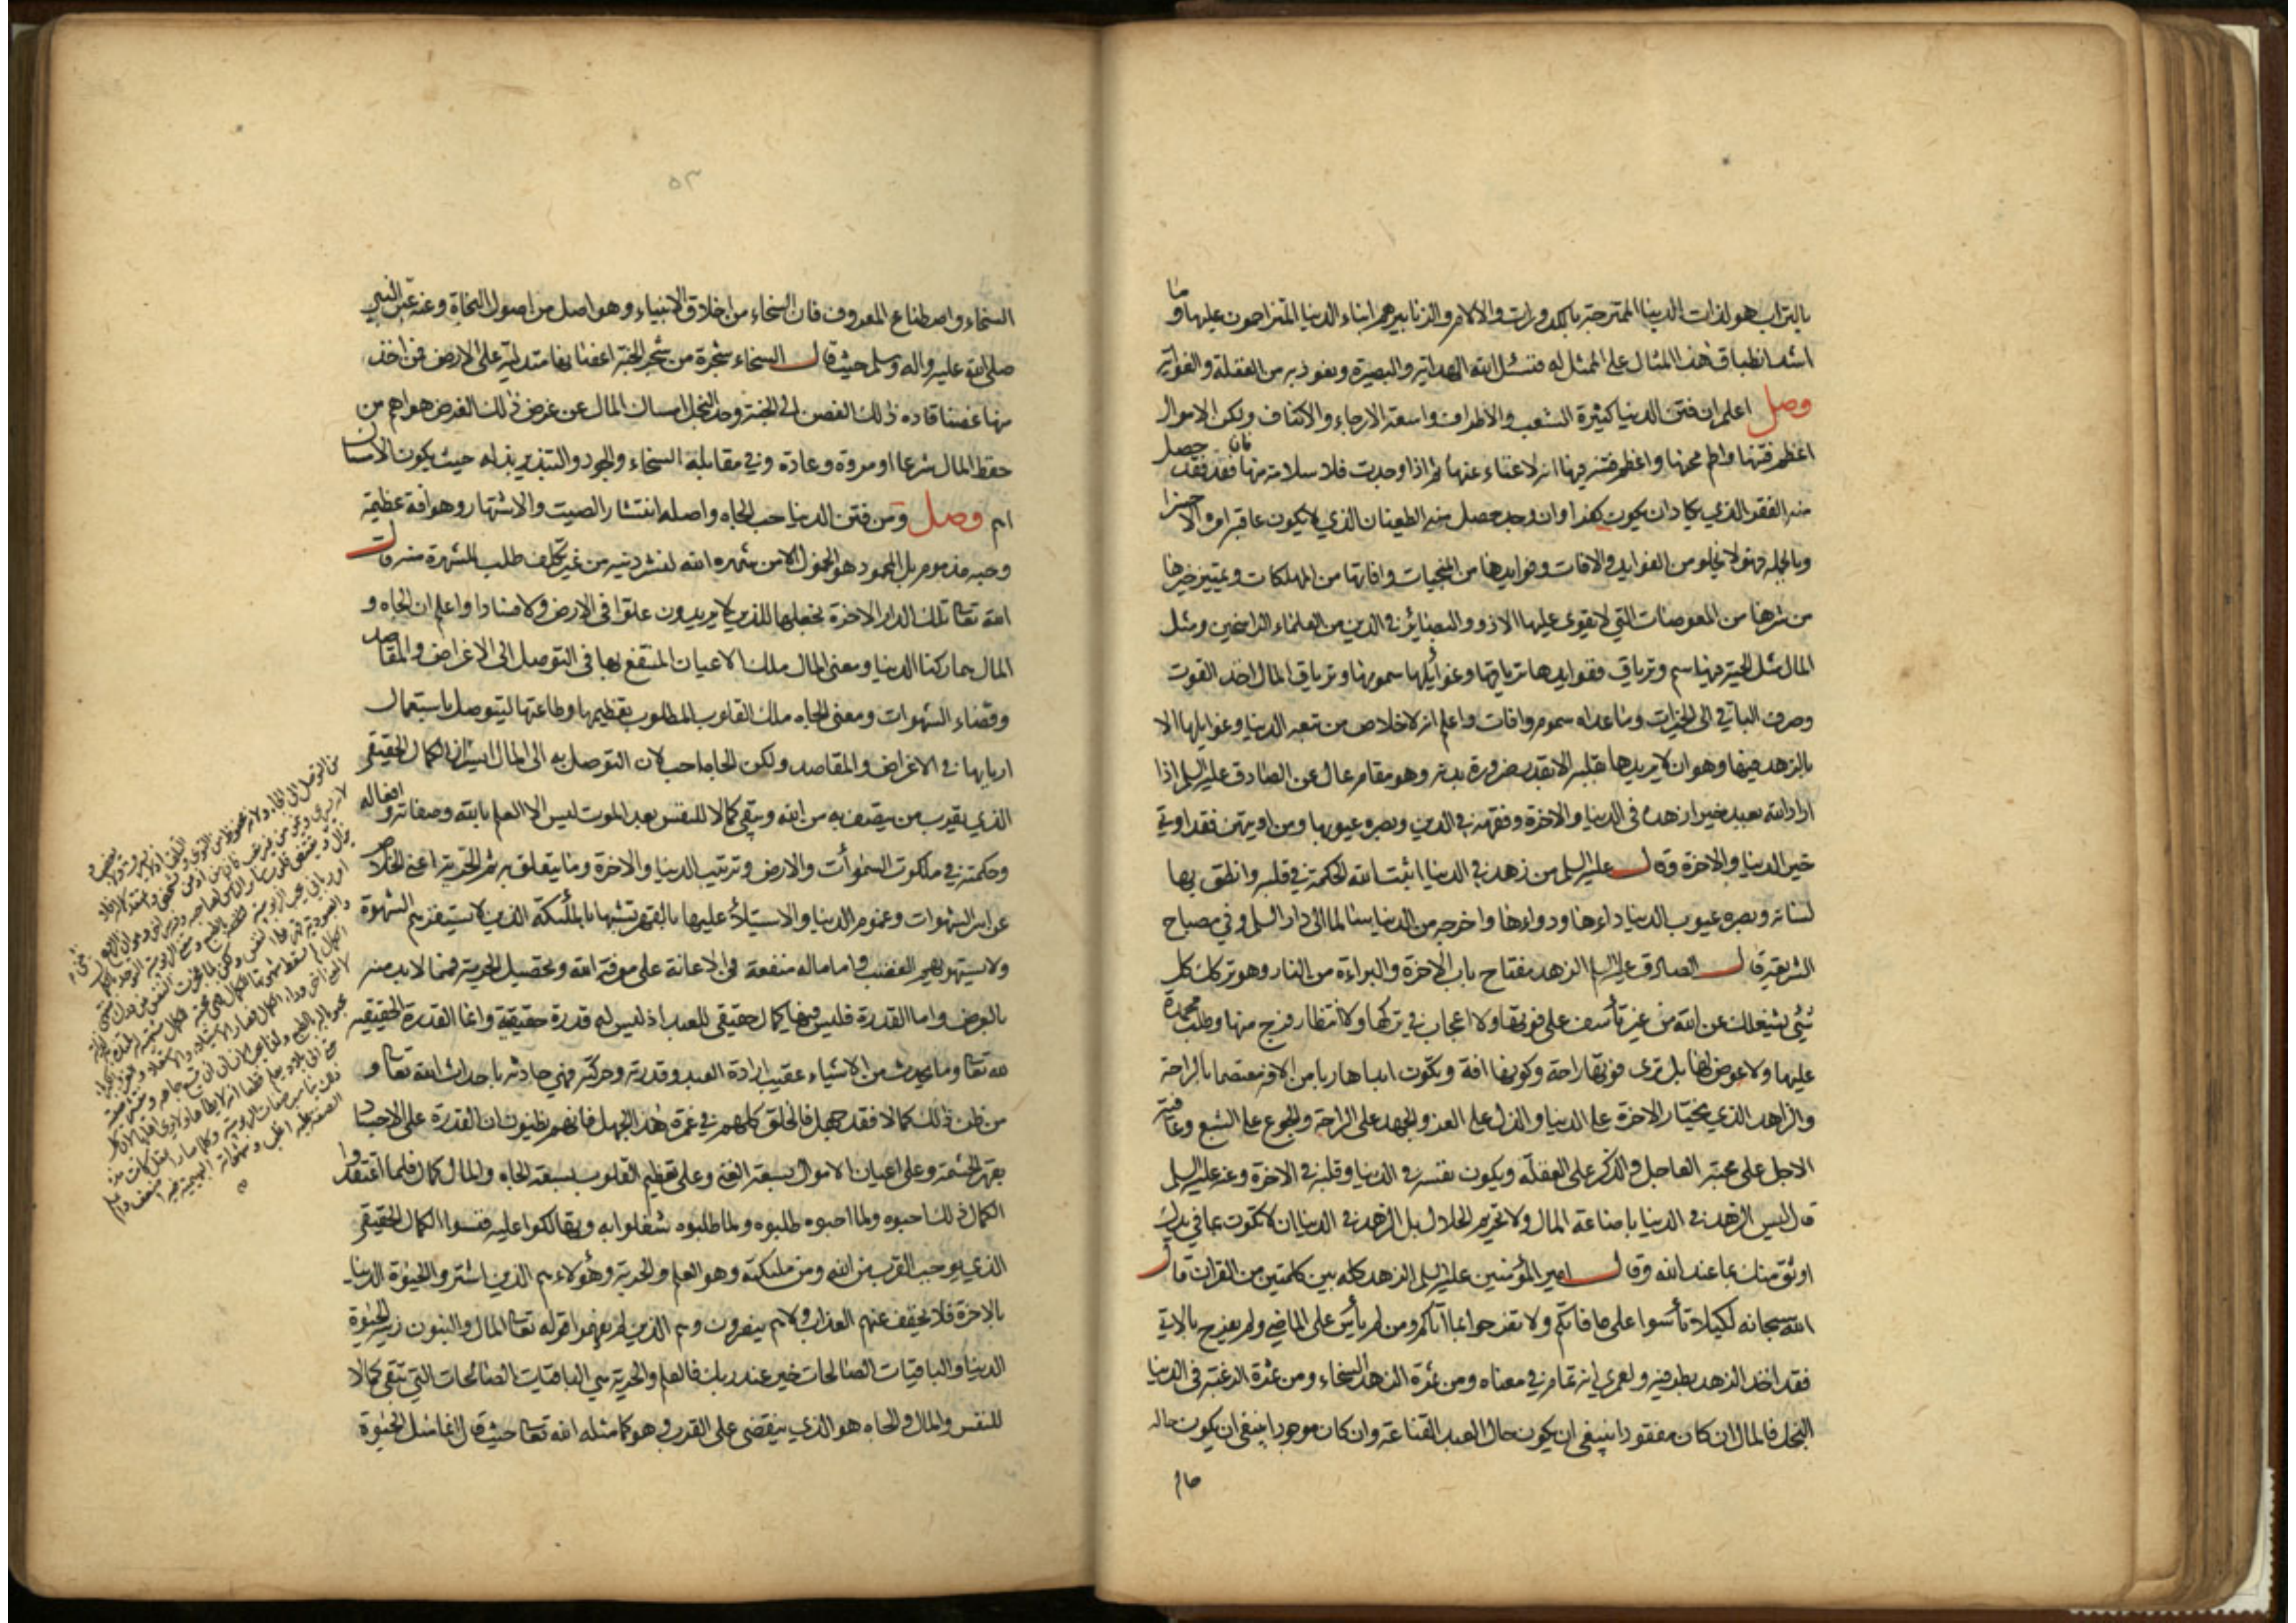 بالتراب هو لذات الدنيا الممتزجة بالكدورات والآلام والزنابير هم ابناء الدنيا المتزاحمون عليها وما
اشد انطباق هذا المثال على الممثل له فنسئل الله الهداية والبصيرة ونعوذ به من الغفلة والغواية
وصل اعلم ان فتن الدنيا كثيرة الشعب والاطراف واسعة الارجاء والاكناف ولكن الاموال
اعظم فتنها واطم محنها واعظم فتنة فيها انه لا غناء عنها ثم اذا وجدت فلا سلامة منها فان فقد حصل
منه الفقر الذي يكاد ان يكون كفرا وان وجد حصل منه الطغيان الذي لا يكون عاقبة امره الا خسرا
وبالجملة فهو لا يخلو من الفوايد والافات وفوايدها من المنجيات وافاتها من المهلكات وتمييز خيرها
من شرها من المعوصات التي لا يقوى عليها الا ذوو البصائر في الدين من العلماء الراسخين ومثل
المال مثل الحية فيها سم وترياق ففوايدها ترياقها وغوائلها سمومها وترياق المال اخذ القوت
وصرف الباقي الى الخيرات وما عداه سموم وافات واعلم انه لا خلاص من تبعة الدنيا وغوايلها الا
بالزهد فيها وهو ان لا يريدها بقلبه الا بقدر ضرورة بدنه وهو مقام عال عن الصادق عليه السلم اذا
اراد الله بعبد خيرا زهده في الدنيا والاخرة وفقهه في الدين وبصره عيوبها ومن اوتيهن فقد اوتي
خير الدنيا والاخرة وقال عليه السلم من زهد في الدنيا اثبت الله الحكمة في قلبه وانطق بها
لسانه وبصره عيوب الدنيا داءها ودواءها واخرجه من الدنيا سالما الى دار السلم وفي مصباح
الشريعة قال الصادق عليه السلم الزهد مفتاح باب الاخرة والبراءة من النار وهو تركك كل
شئ يشغلك عن الله من غير تأسف على فوتها ولا اعجاب في تركها ولا انتظار فرج منها وطلب محمدة
عليها ولا عوض لها بل ترى فوتها راحة وكونها افة وتكون ابدا هاربا من الافة معتصما بالراحة
والزاهد الذي يختار الاخرة على الدنيا والذل على العز والجهد على الراحة والجوع على الشبع وعافية
الاجل على محبة العاجل والذكر على الغفلة ويكون نفسه في الدنيا وقلبه في الاخرة وعنه عليه السلم
قال ليس الزهد في الدنيا باضاعة المال ولا تحريم الحلال بل الزهد في الدنيا ان لا تكون بما في يدك
اوثق منك بما عند الله وقال امير المؤمنين عليه السلم الزهد كله بين كلمتين من القران قال
الله سبحانه لكيلا تأسوا على ما فاتكم ولا تفرحوا بما اتاكم ومن لم يأس على الماضي ولم يفرح بالاتي
فقد اخذ الزهد بطرفيه ولعمري انه تمام في معناه ومن ثمرة الزهد السخاء ومن ثمرة الرغبة في الدنيا
البخل فالمال ان كان مفقودا ينبغي ان يكون حال العبد القناعة وان كان موجودا ينبغي ان يكون حاله
حاله
٥٣
السخاء واصطناع المعروف فان السخاء من اخلاق الانبياء وهو اصل من اصول النجاة وعنه عبر النبي
صلى الله عليه واله وسلم حيث قال السخاء شجرة من شجر الجنة اغصانها متدلية على الارض فمن اخذ
منها غصنا قاده ذلك الغصن الى الجنة وحد البخل امساك المال عن غرض ذلك الغرض هو اهم من
حفظ المال شرعا او مروة وعادة وفي مقابلة السخاء والجود والتبذير بذله حيث يكون الامساك
اهم وصل ومن فتن الدنيا حب الجاه واصله انتشار الصيت والاشتهار وهو افة عظيمة
وحبه مذموم بل المحمود هو الخمول الا من شهره الله لنشر دينه من غير تكلف طلب الشهرة منه قال
الله تعالى تلك الدار الاخرة نجعلها للذين لا يريدون علوا في الارض ولا فسادا واعلم ان الجاه و
المال هما ركنا الدنيا ومعنى المال ملك الاعيان المنتفع بها في التوصل الى الاغراض والمقاصد
وقضاء الشهوات ومعنى الجاه ملك القلوب المطلوب تعظيمها وطاعتها ليتوصل باستعمال
اربابها في الاغراض والمقاصد ولكن الجاه احب لان التوصل به الى المال ايسر ان الكمال الحقيقي
الذي يقرب من يتصف به من الله ويبقى كمالا للنفس بعد الموت ليس الا العلم بالله وصفاته وافعاله
وحكمته في ملكوت السموات والارض وترتيب الدنيا والاخرة وما يتعلق به ثم الحرية اعني الخلاص
عن اسر الشهوات وغموم الدنيا والاستيلاء عليها بالقهر تشبها بالملئكة الذين لا يستفزهم الشهوة
ولا يستهويهم الغضب واما ماله منفعة في الاعانة على معرفة الله وتحصيل الحرية فمما لابد منه
بالعرض واما القدرة فليس فيها كمال حقيقي للعبد اذ ليس له قدرة حقيقية وانما القدرة الحقيقية
لله تعالى وما يحدث من الاشياء عقيب ارادة العبد وقدرته وحركته فهي حادثة باحداث الله تعالى و
من ظن ذلك كمالا فقد جهل فالخلق كلهم في غمرة هذا الجهل فانهم يظنون ان القدرة على الاجساد
بقهر الحشمة وعلى اعيان الاموال بسعة الغنى وعلى تعظيم القلوب بسعة الجاه والمال كمال فلما اعتقدوا
الكمال ذلك احبوه ولما احبوه طلبوه ولما طلبوه شغلوا به وتهالكوا عليه فنسوا الكمال الحقيقي
الذي يوجب القرب من الله ومن ملئكته وهو العلم والحرية وهؤلاء هم الذين اشتروا الحيوة الدنيا
بالاخرة فلا يخفف عنهم العذاب ولا هم ينصرون وهم الذين لم يفهموا قوله تعالى المال والبنون زينة الحيوة
الدنيا والباقيات الصالحات خير عند ربك فالعلم والحرية هي الباقيات الصالحات التي تبقى كمالا
للنفس والمال والجاه هو الذي ينقضي على القرب وهو كما مثله الله تعالى حيث قال انما مثل الحيوة